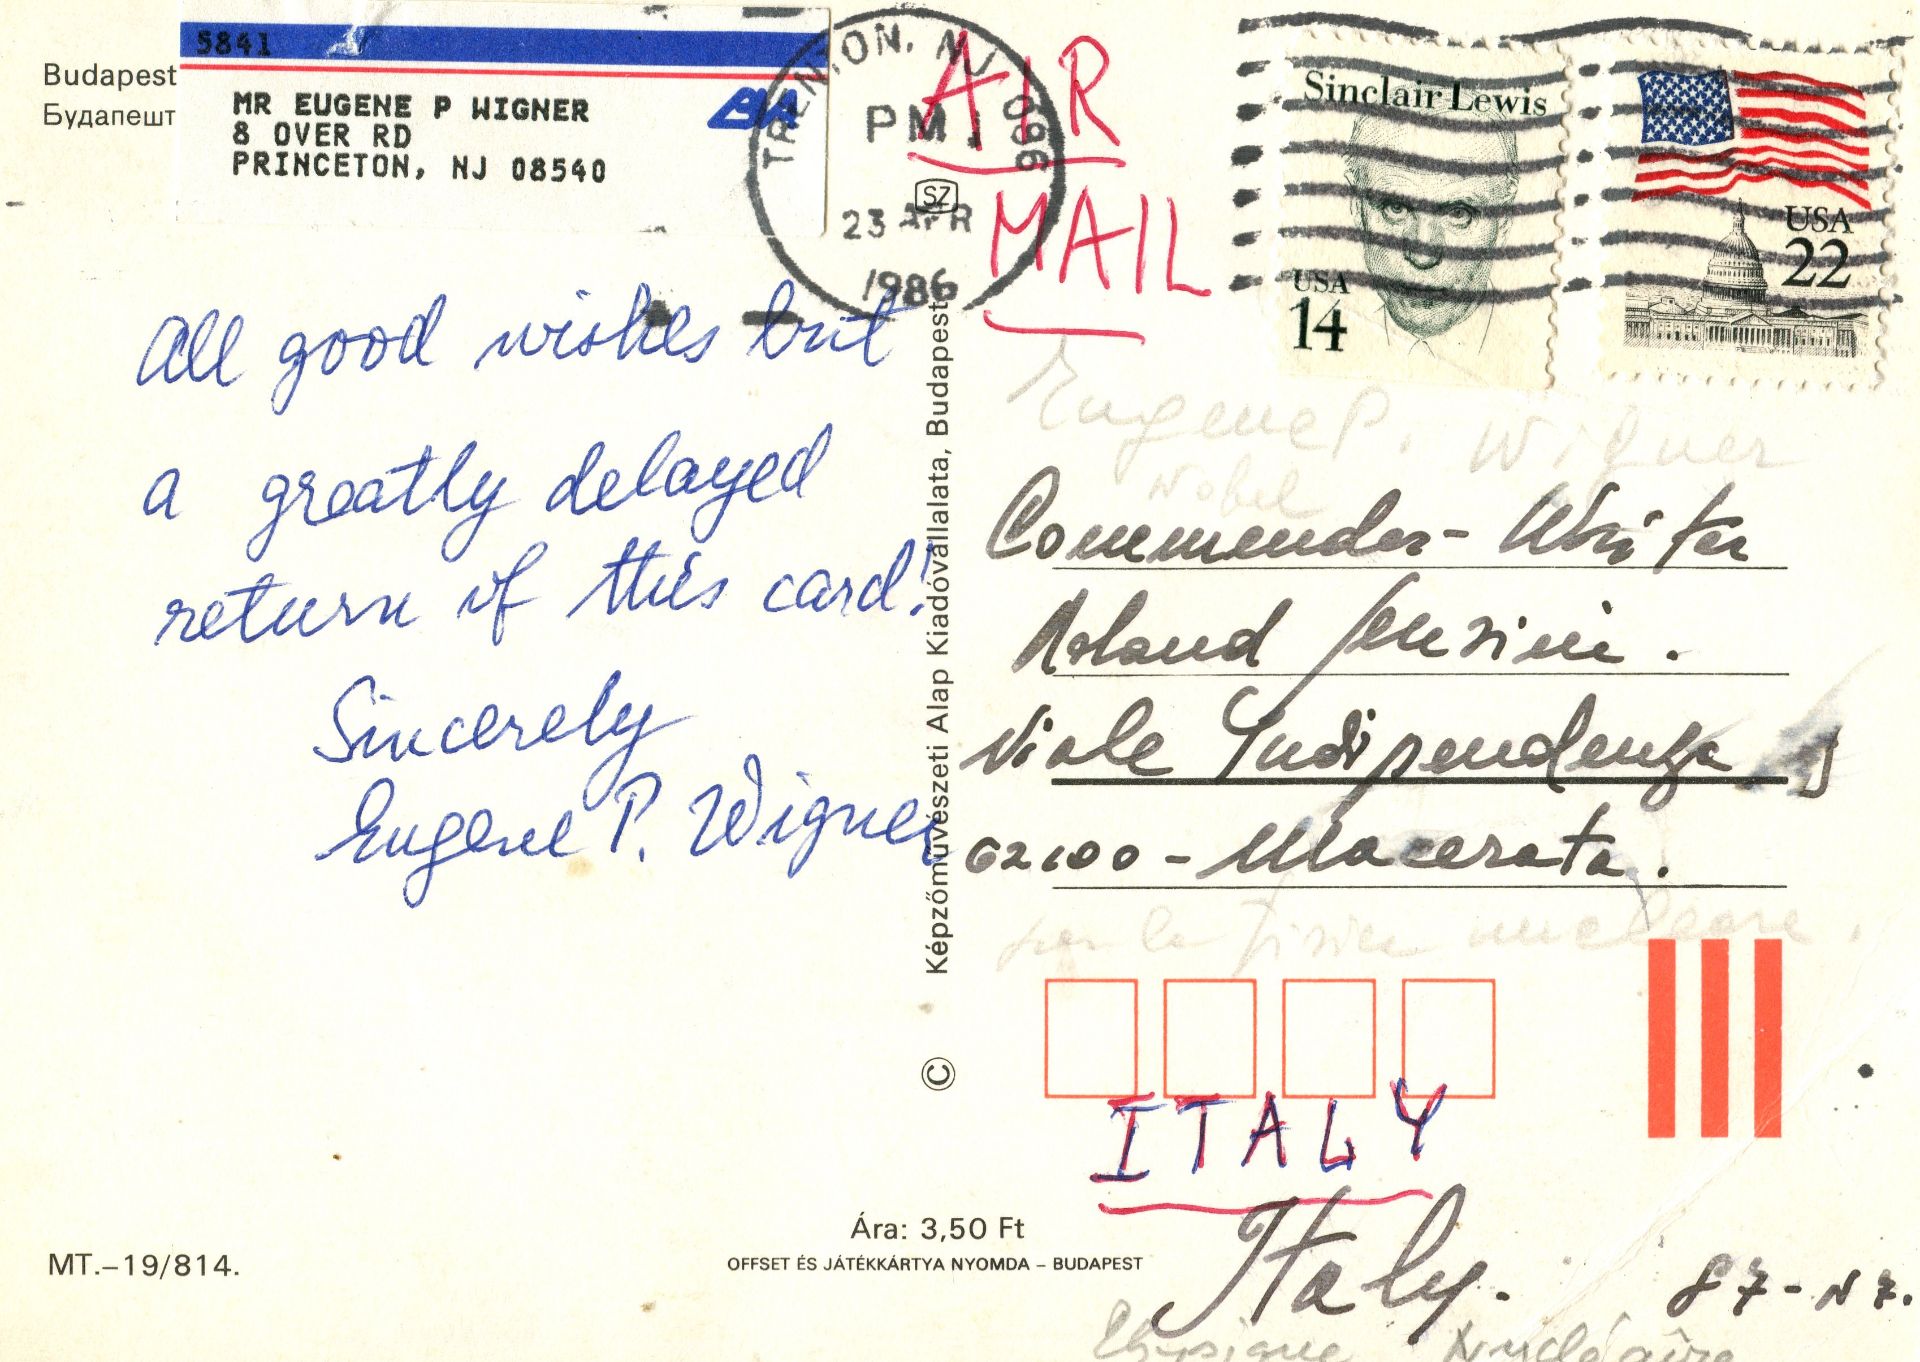 5841
Budapest
Будапешт
MR EUGENE P WIGNER
8 OVER RD
PRINCETON, NJ 08540
TRENTON, NJ 086
PM
23 APR
1986
SZ
AIR
MAIL
Sinclair Lewis
USA
14
USA
22
All good wishes but
a greatly delayed
return of this card!
Sincerely
Eugene P. Wigner
Képzőművészeti Alap Kiadóvállalata, Budapest
©
Eugene P. Wigner
Nobel
Commender - Writer
Roland
Viale Indipendenza
62100 - Macerata.
per la fisica nucleare.
ITALY
Italy.
87-N7.
Nucléaire
Ára: 3,50 Ft
OFFSET ÉS JÁTÉKKÁRTYA NYOMDA – BUDAPEST
MT.–19/814.